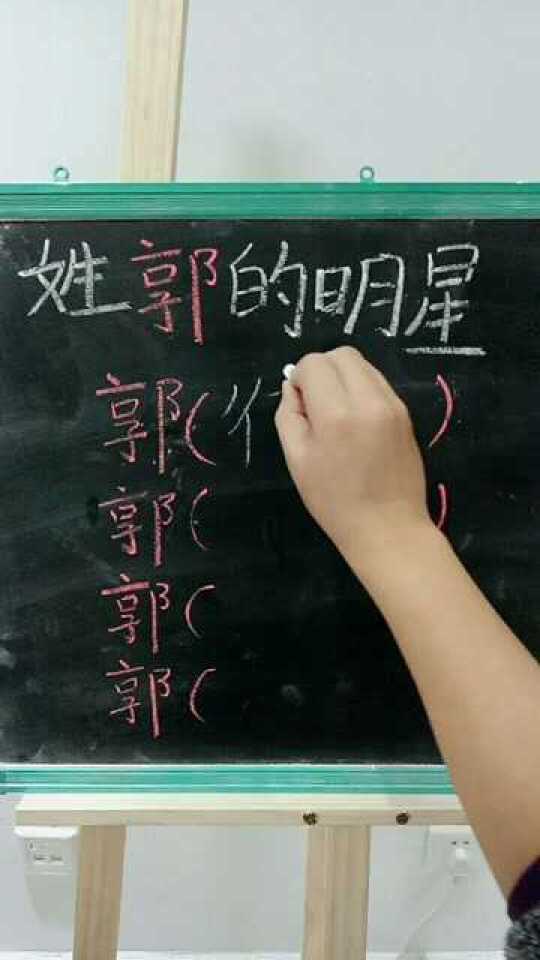 姓郭的明星
郭( )
郭( )
郭(
郭(